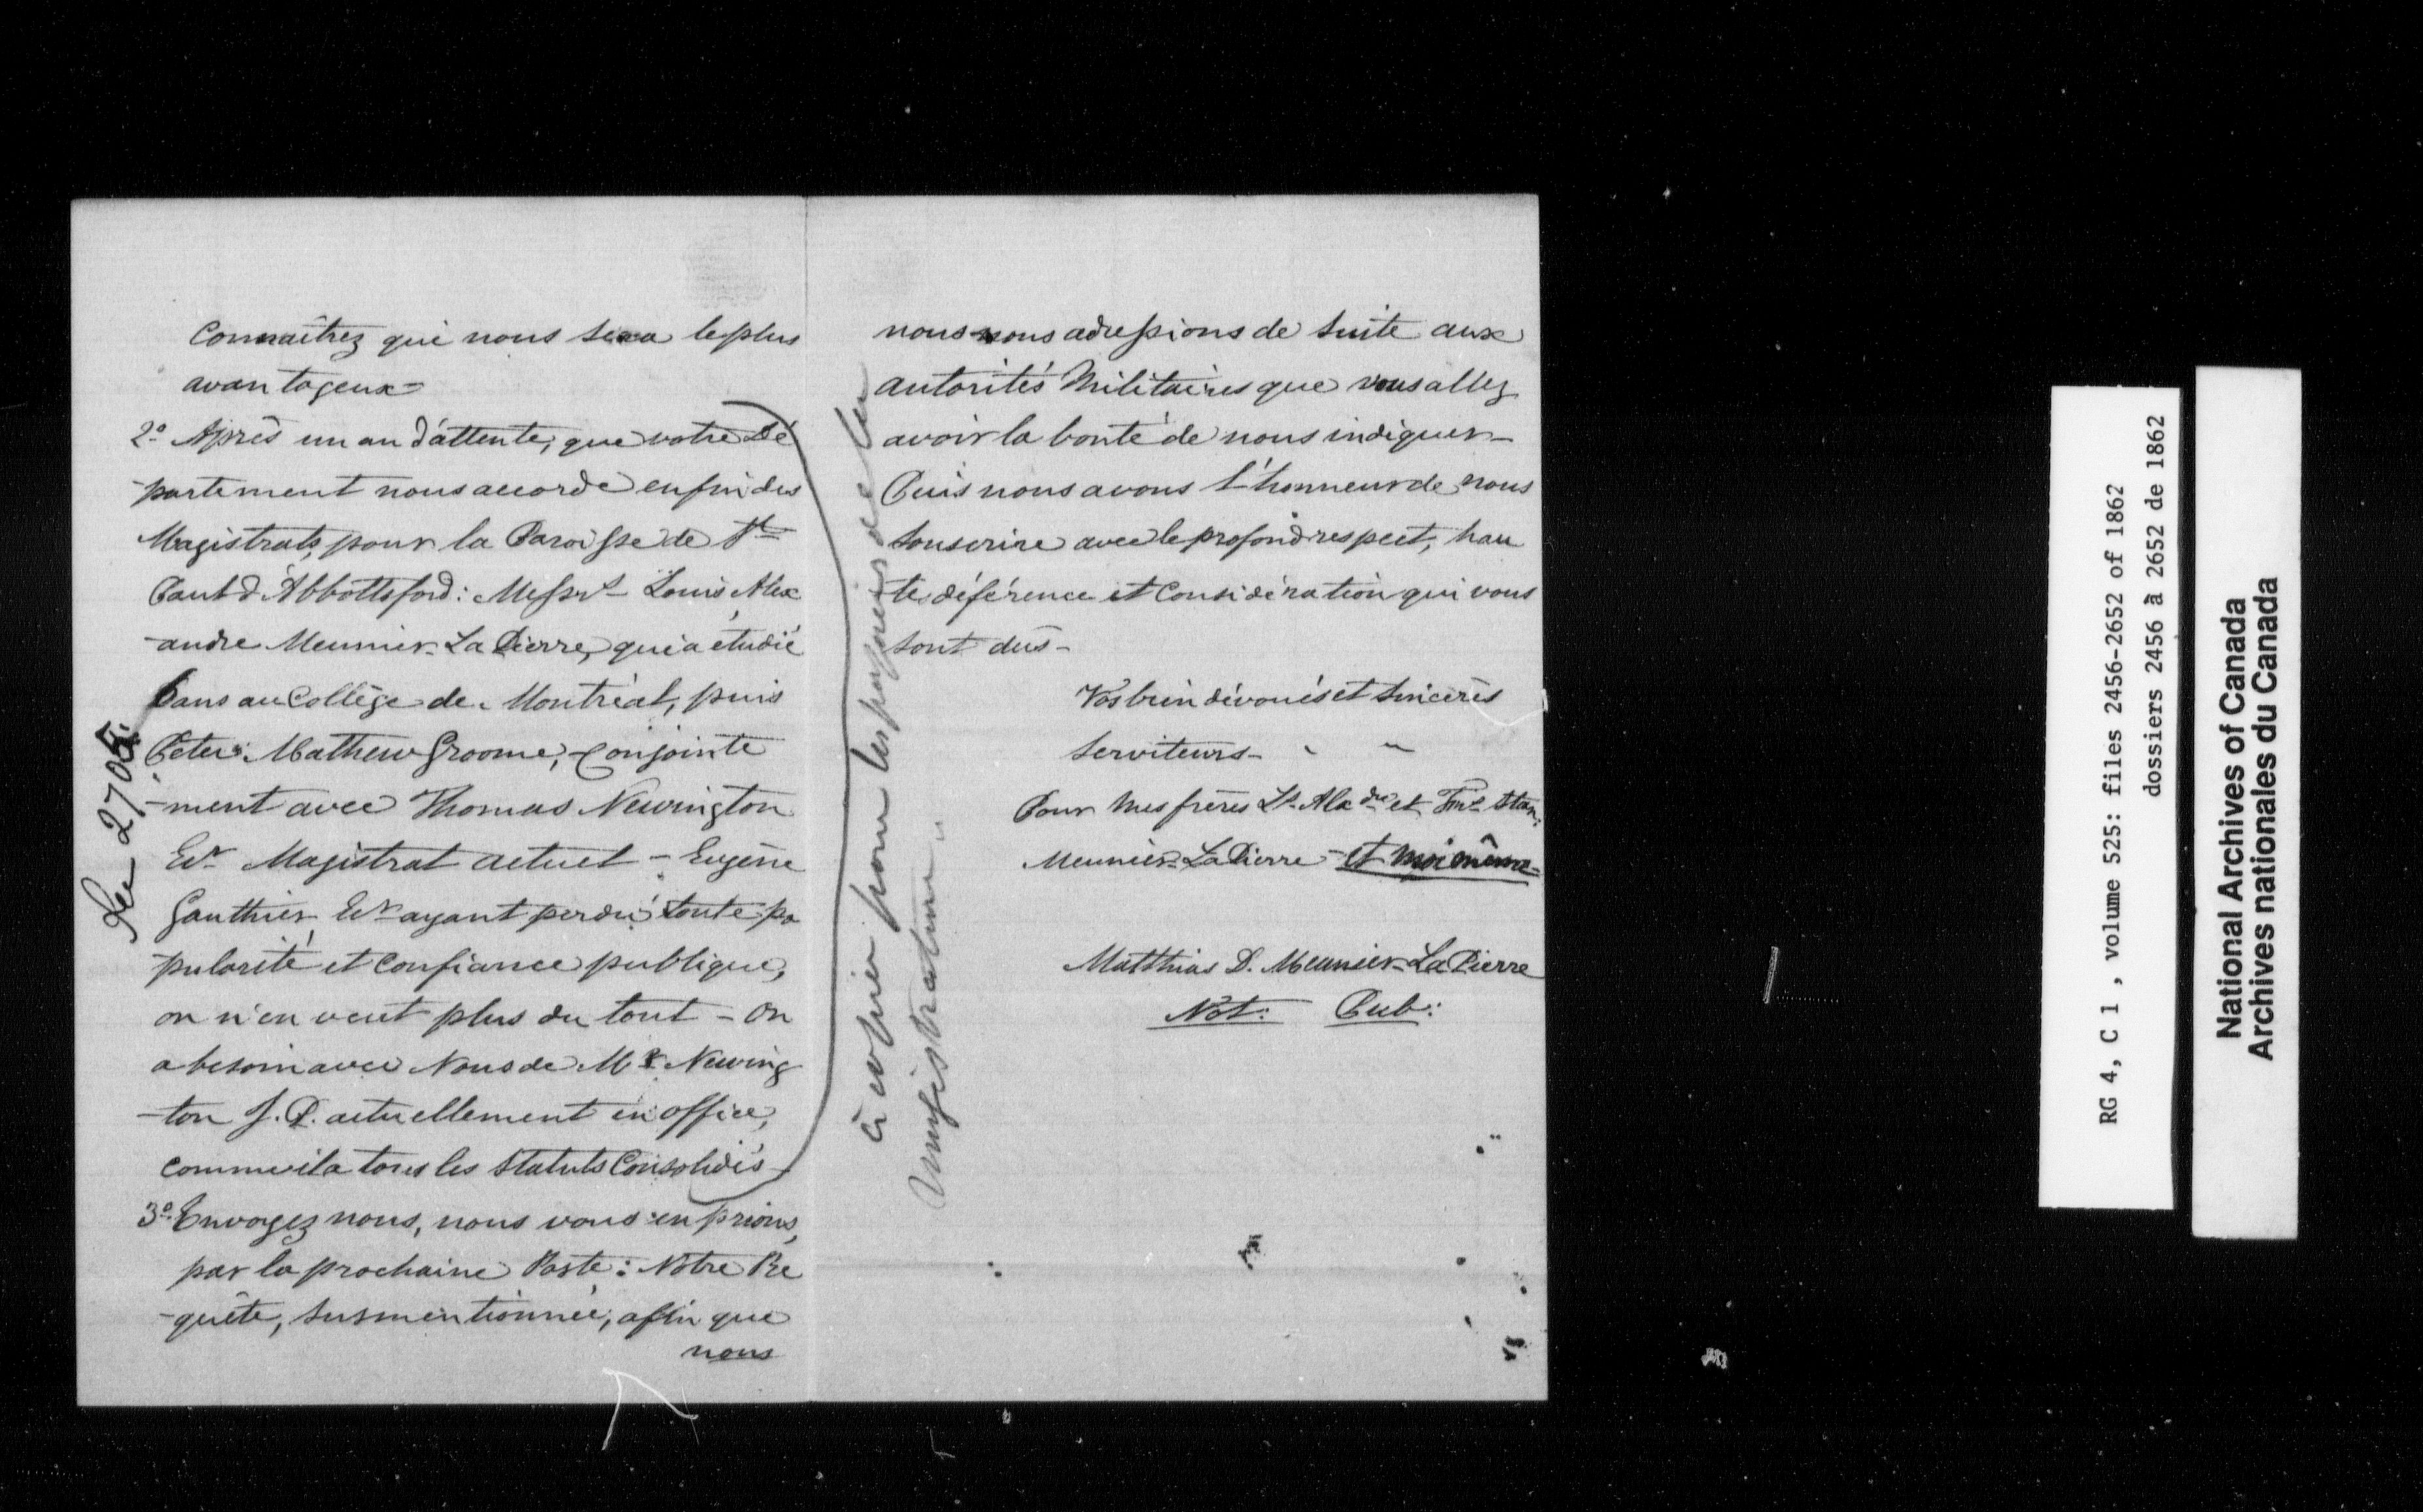 Connaîtrez qui nous sera le plus
avantageux=
2° Après un an d'attente, que votre Dé
-partement nous accorde enfin des
Magistrats, pour la Paroisse de St
Paul d'Abbottsford: Messrs Louis Alex
-andre Meunier-LaPierre, qui a étudié
6 ans au Collège de Montréal, puis
Peter Mathew Groome, conjointe
-ment avec Thomas Newington
Er Magistrat actuel - Eugène
Gauthier Er ayant perdu toute po
pularité et confiance publique,
on n'en veut plus du tout - On
a besoin avec Nous de Mr Newing
-ton J.P. actuellement en office,
comme il a tous les Statuts Consolidés -
3° Envoyez nous, nous vous en prions,
par la prochaine Poste: Notre Re
-quête, susmentionnée, afin que
nous
2705
nous nous adressions de suite aux
autorités Militaires que vous allez
avoir la bonté de nous indiquer -
Puis nous avons l'honneur de nous
souscrire avec le profond respect, hau
te déférence et Considération qui vous
sont dus -
Vos bien dévoués et sincères
serviteurs -
Pour mes frères Ls Alexdre et Frs Stan:
Meunier-LaPierre - et moi même -
Matthias D. Meunier-LaPierre
Not: Pub:
à copier pour les papiers de la
Magistrature
RG 4, C 1 , volume 525: files 2456-2652 of 1862
dossiers 2456 à 2652 de 1862
National Archives of Canada
Archives nationales du Canada